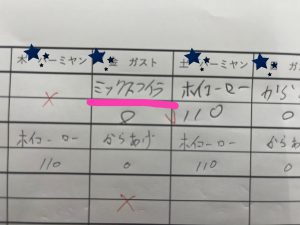 木 バーミヤン 金 ガスト 土 バーミヤン ガスト
× ミックスフライ ホイコーロー からあ
0 110 0
ホイコーロー からあげ ホイコーロー からあ
110 0 110 0
×